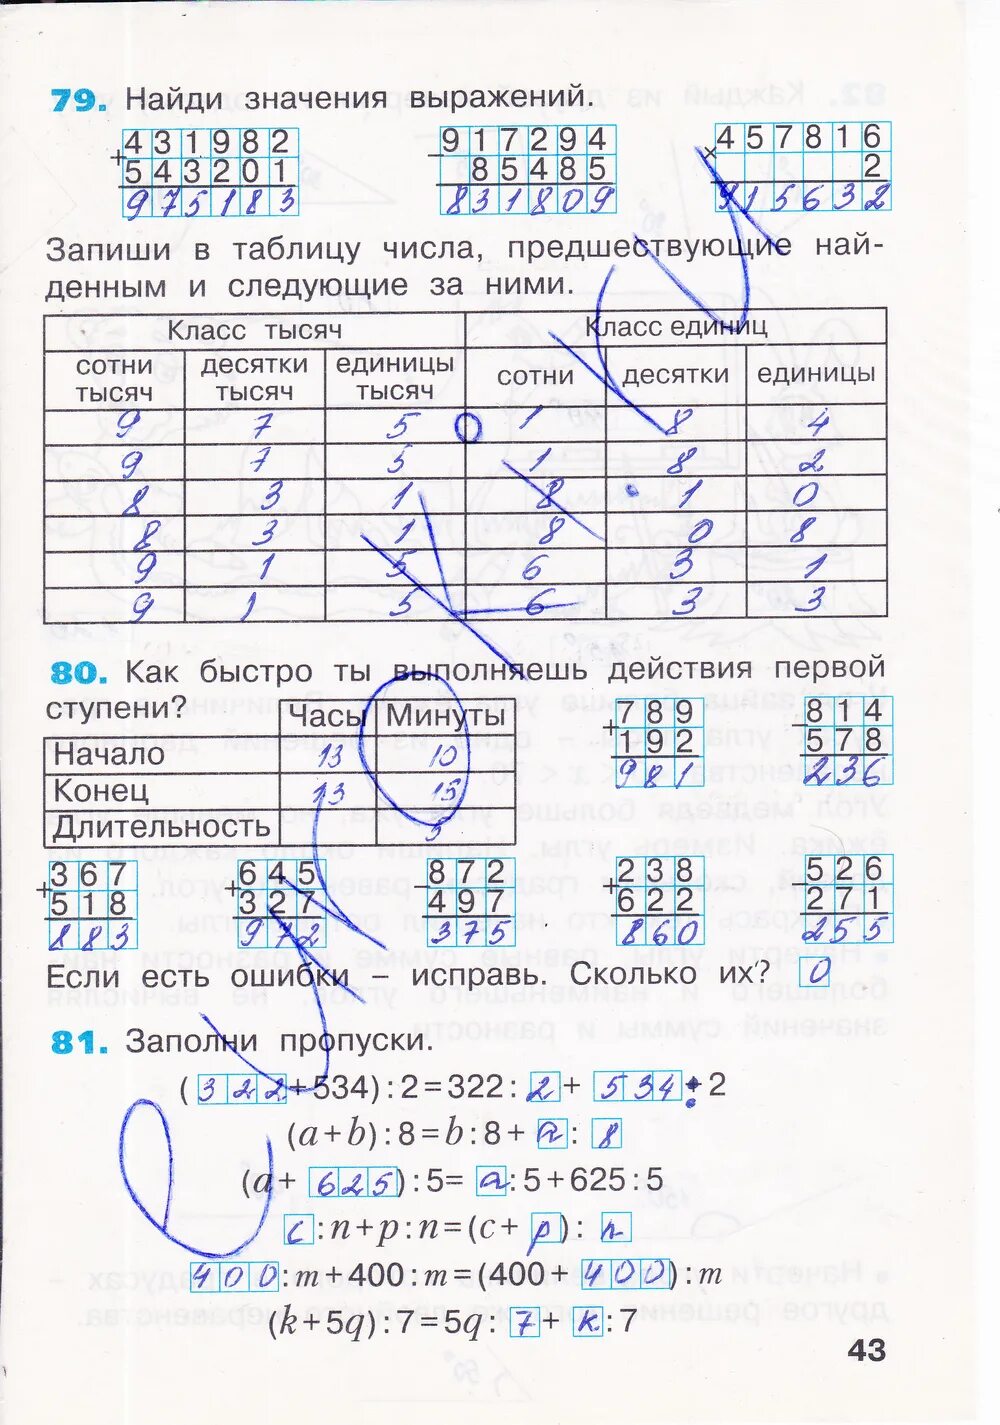 79. Найди значения выражений.
431982 917294 457816
+ - ×
543201 85485 2
975183 831809 915632
Запиши в таблицу числа, предшествующие най-
денным и следующие за ними.
Класс тысяч Класс единиц
сотни тысяч десятки тысяч единицы тысяч сотни десятки единицы
9 7 5 1 8 4
9 7 5 1 8 2
8 3 1 8 1 0
8 3 1 8 0 8
9 1 5 6 3 1
9 1 5 6 3 3
80. Как быстро ты выполняешь действия первой
ступени?
Часы Минуты
Начало 13 10
Конец 13 15
Длительность 5
+789 -814
192 578
981 236
+367 +645 -872 +238 -526
518 327 497 622 271
883 972 375 860 255
Если есть ошибки – исправь. Сколько их? 0
81. Заполни пропуски.
(322+534):2=322:2+534:2
(a+b):8=b:8+a:8
(a+625):5=a:5+625:5
c:n+p:n=(c+p):n
400:m+400:m=(400+400):m
(k+5q):7=5q:7+k:7
43